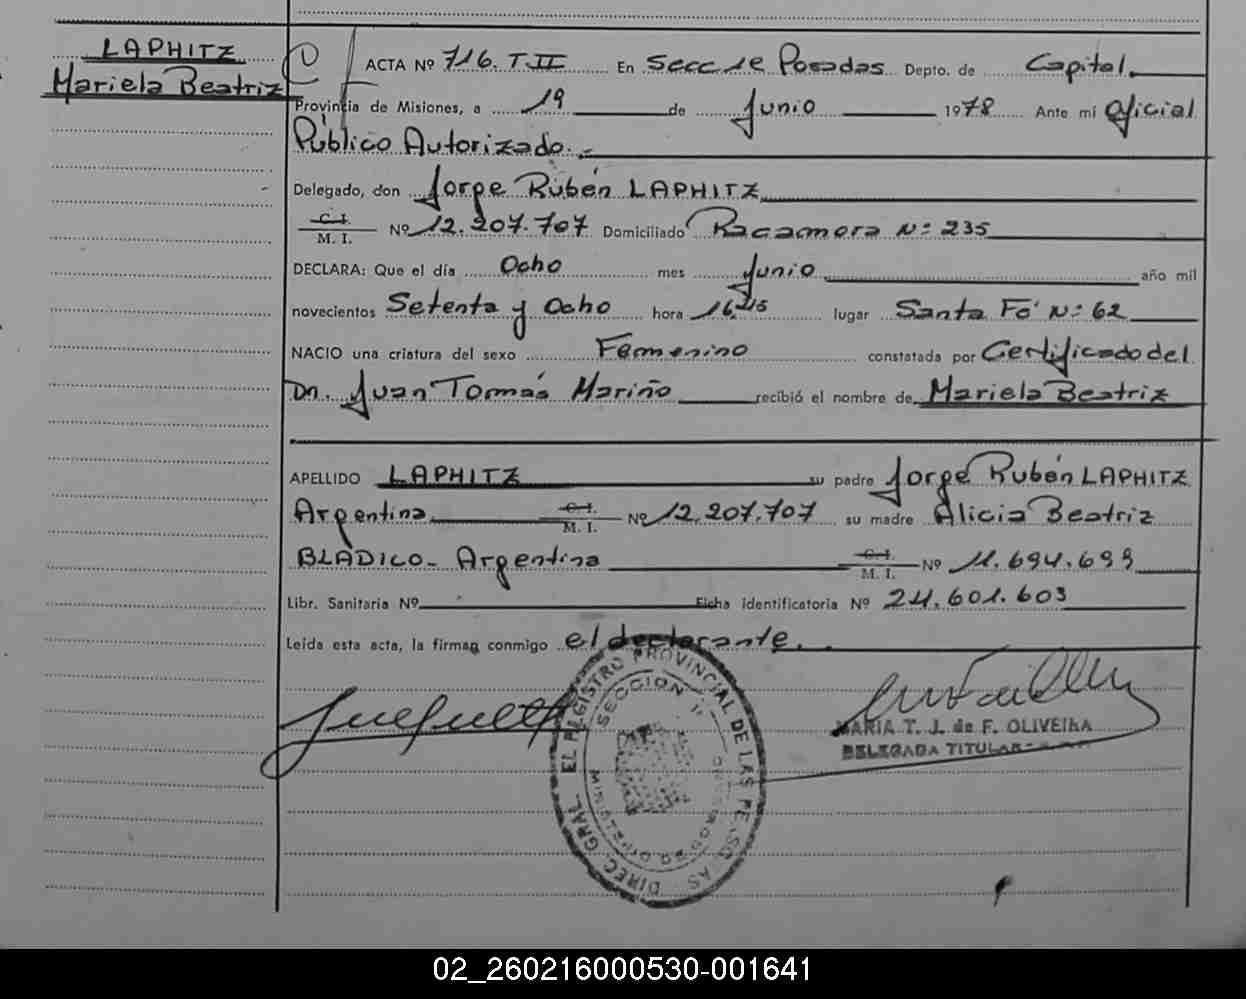 LAPHITZ
Mariela Beatriz
ACTA Nº 716. T II En Secc 1e Posadas Depto. de Capital.
Provincia de Misiones, a 19 de Junio 1978 Ante mí Oficial
Público Autorizado.-
Delegado, don Jorge Rubén LAPHITZ
C. I.
M. I. Nº 12.207.707 Domiciliado Racamora Nº 235
DECLARA: Que el día Ocho mes Junio año mil
novecientos Setenta y Ocho hora 16,45 lugar Santa Fé Nº 62
NACIO una criatura del sexo Femenino constatada por Certificado del
Dn. Juan Tomás Mariño recibió el nombre de Mariela Beatriz
APELLIDO LAPHITZ su padre Jorge Rubén LAPHITZ
Argentina C. I. M. I. Nº 12.207.707 su madre Alicia Beatriz
BLADICO- Argentina C. I. M. I. Nº 11.694.699
Libr. Sanitaria Nº Ficha identificatoria Nº 24.601.603
Leída esta acta, la firman conmigo el declarante.
DIREC. GRAL. EL REGISTRO PROVINCIAL DE LAS PERSONAS
SECCION 1ª
MARIA T. J. de F. OLIVEIRA
DELEGADA TITULAR
02_260216000530-001641